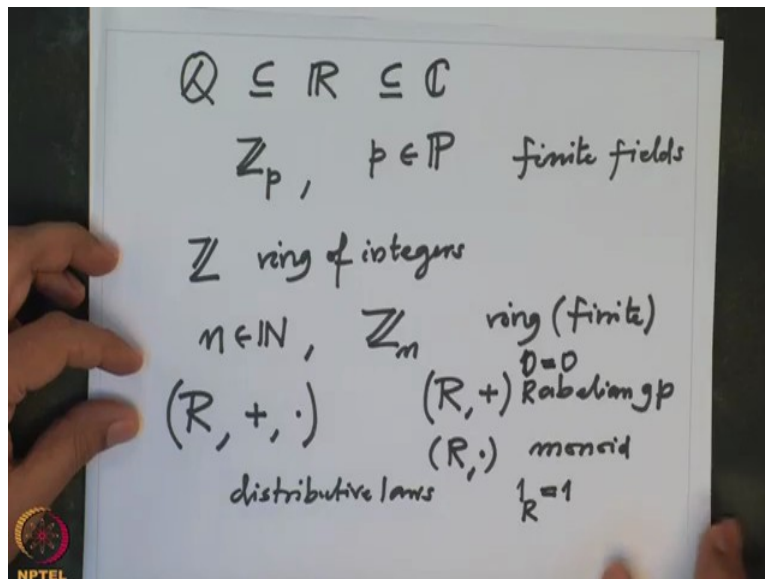 ℚ ⊆ ℝ ⊆ ℂ
ℤ_p , p ∈ ℙ finite fields
ℤ ring of integers
n ∈ ℕ , ℤ_n ring (finite)
0_R = 0
(R, +, ·) (R, +) abelian gp
(R, ·) monoid
distributive laws 1_R = 1
NPTEL